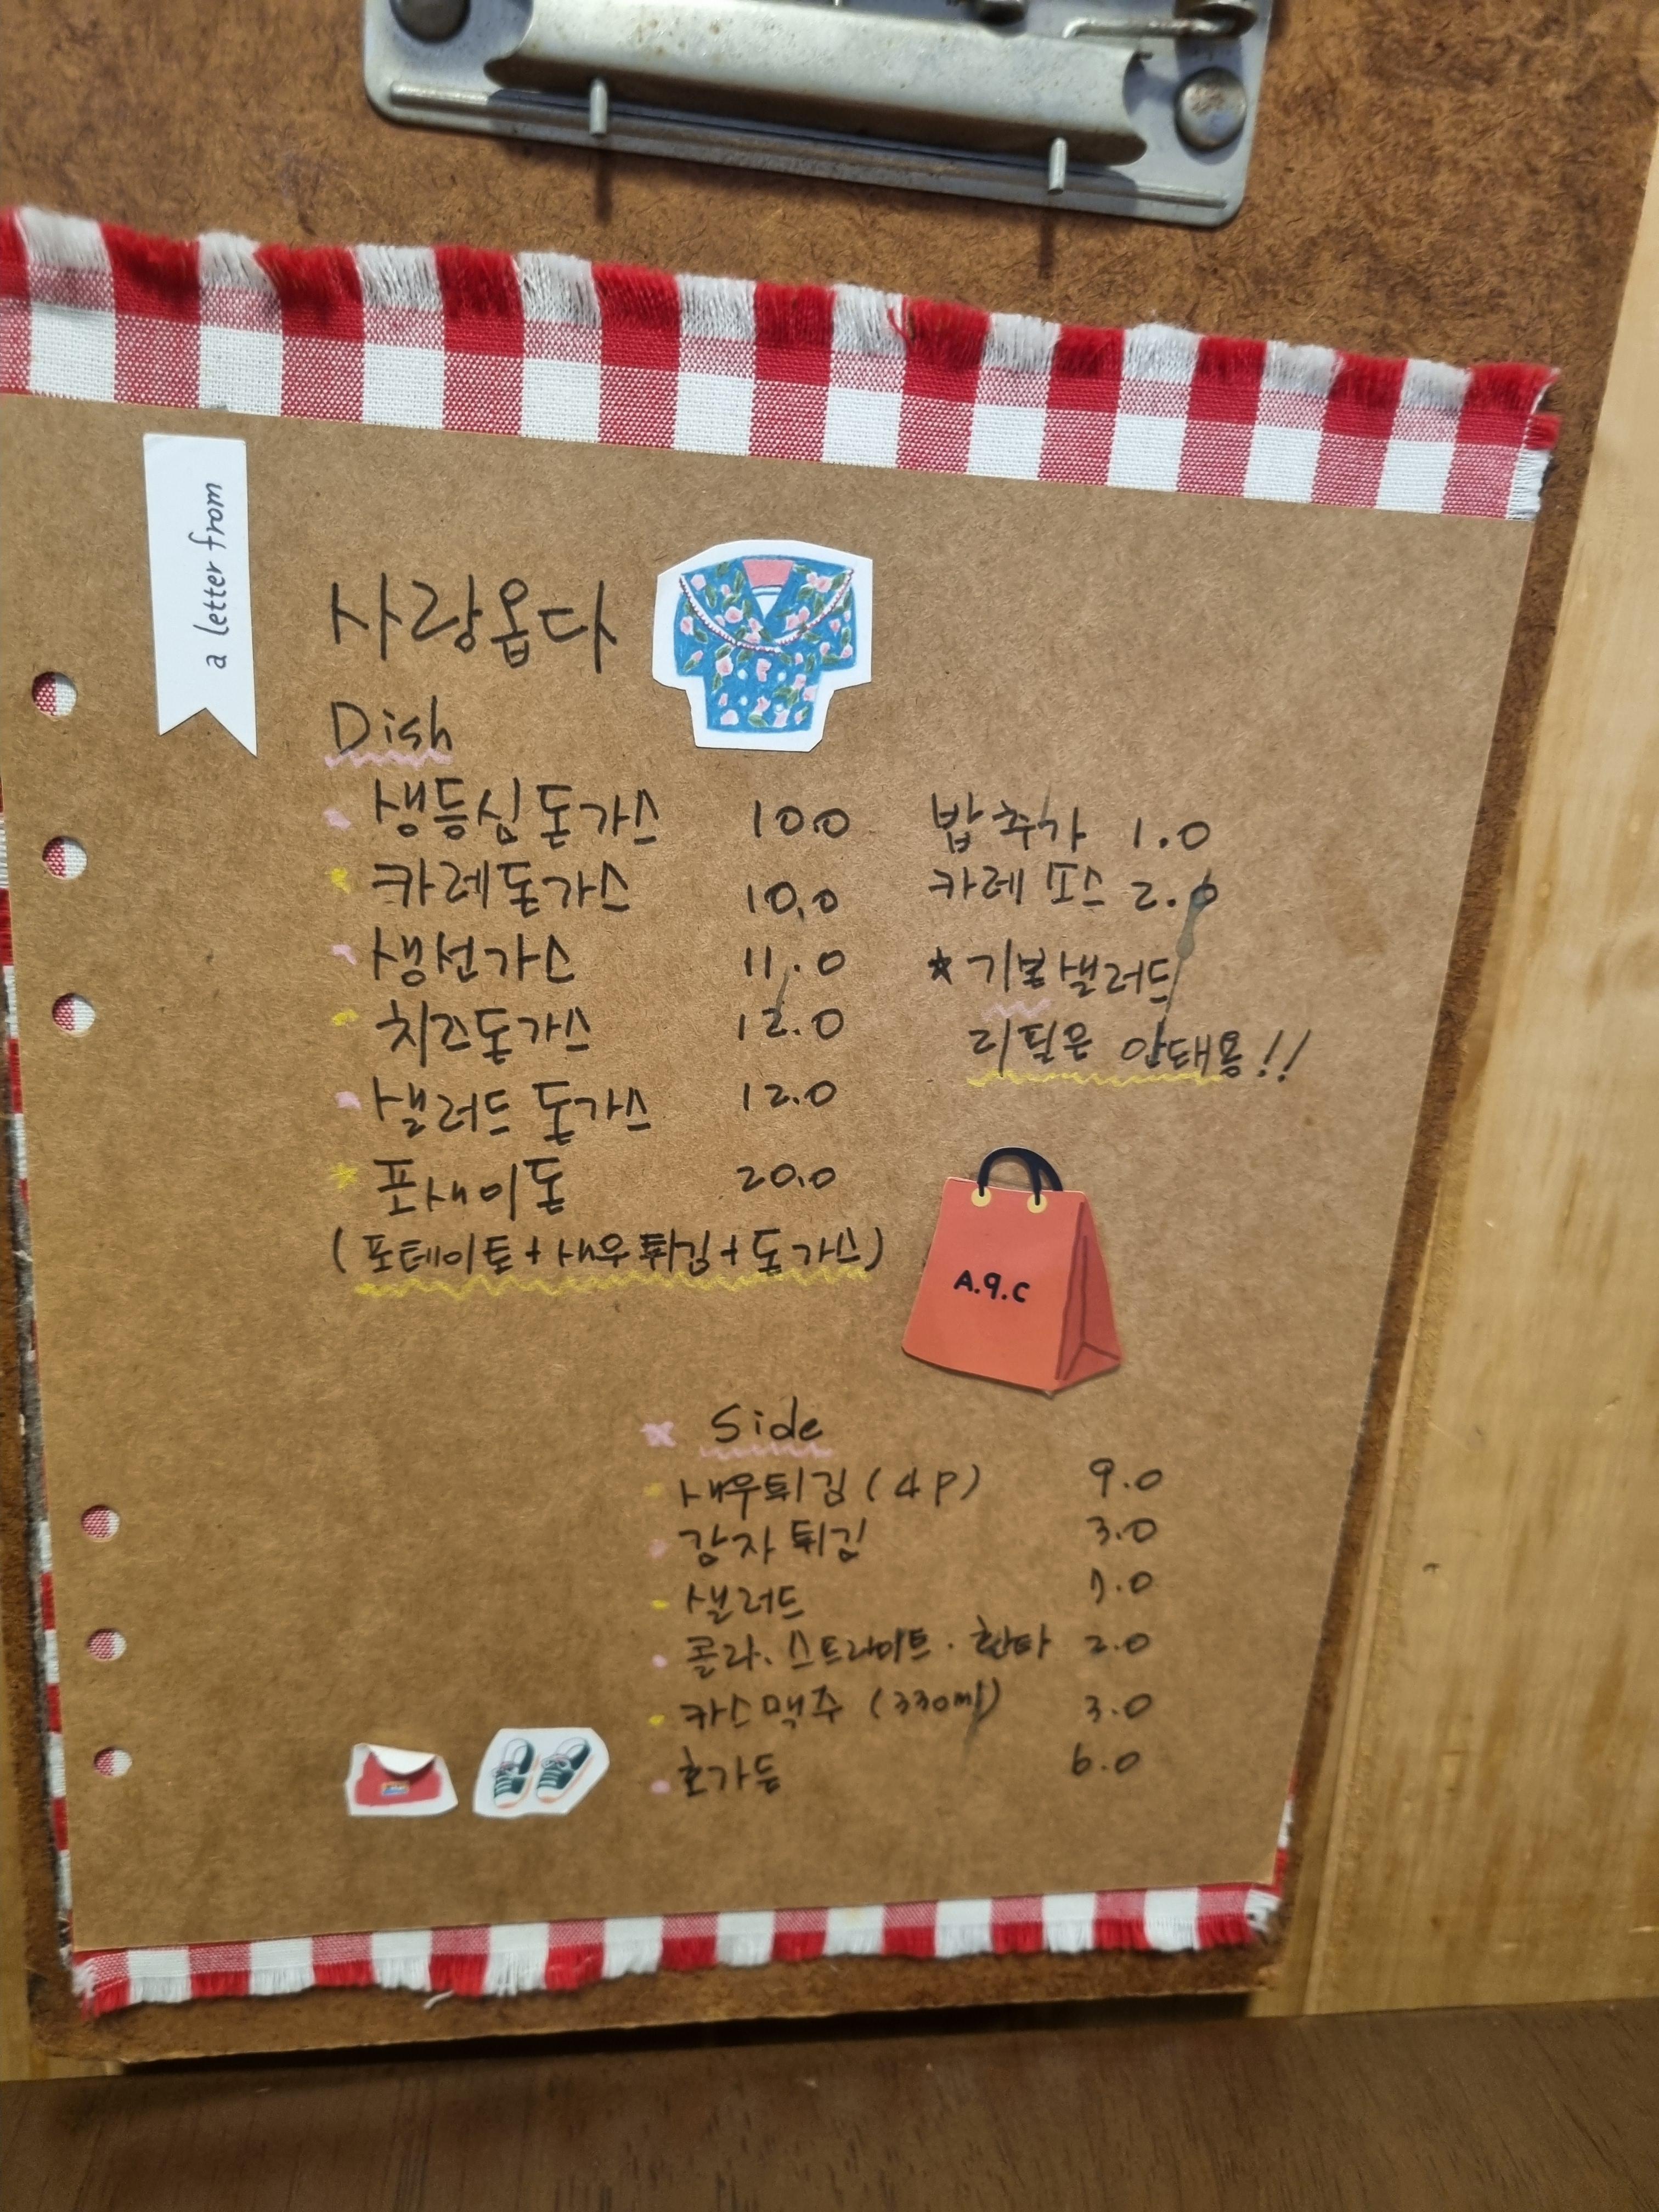 a letter from
사랑옵다
Dish
생등심돈가스 10.0
카레돈가스 10.0
생선가스 11.0
치즈돈가스 12.0
샐러드 돈가스 12.0
포새이돈 20.0
(포테이토+새우튀김+돈가스)
밥추가 1.0
카레 소스 2.0
* 기본샐러드
리필은 안돼용!!
A.P.C
Side
새우튀김 (4P) 9.0
감자튀김 3.0
샐러드
콜라. 스프라이트. 환타 2.0
카스맥주 (330ml) 3.0
호가든 6.0